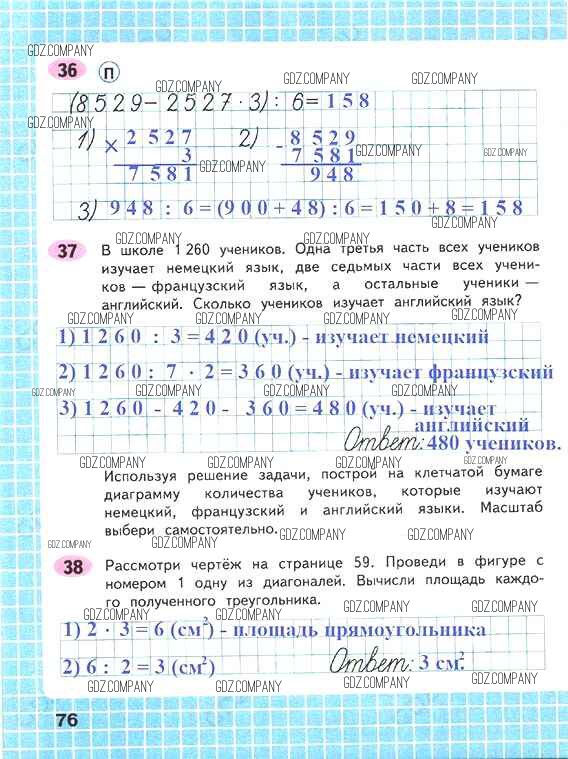 GDZ.COMPANY
36 П
GDZ.COMPANY GDZ.COMPANY GDZ.COMPANY
(8529–2527·3): 6=158
GDZ.COMPANY
1) × 2527 2) - 8529
3 7581 GDZ.COMPANY GDZ.COMPANY
7581 GDZ.COMPANY 948
3) 948 : 6=(900+48):6=150+8=158
GDZ.COMPANY
GDZ.COMPANY
37 В школе 1260 учеников. Одна третья часть всех учеников
GDZ.COMPANY
изучает немецкий язык, две седьмых части всех учени-
ков — французский язык, а остальные ученики —
английский. Сколько учеников изучает английский язык?
GDZ.COMPANY GDZ.COMPANY GDZ.COMPANY GDZ.COMPANY
1) 1260 : 3=420 (уч.) - изучает немецкий
2) 1260: 7 · 2=360 (уч.) - изучает французский
GDZ.COMPANY GDZ.COMPANY GDZ.COMPANY GDZ.COMPANY
3) 1260 - 420- 360=480 (уч.) - изучает
английский
GDZ.COMPANY
Ответ: 480 учеников.
GDZ.COMPANY GDZ.COMPANY GDZ.COMPANY GDZ.COMPANY
Используя решение задачи, построй на клетчатой бумаге
диаграмму количества учеников, которые изучают
немецкий, французский и английский языки. Масштаб
выбери самостоятельно.
GDZ.COMPANY GDZ.COMPANY
GDZ.COMPANY
38 Рассмотри чертёж на странице 59. Проведи в фигуре с
номером 1 одну из диагоналей. Вычисли площадь каждо-
го полученного треугольника.
GDZ.COMPANY GDZ.COMPANY GDZ.COMPANY GDZ.COMPANY
1) 2 · 3=6 (см²) - площадь прямоугольника
2) 6 : 2=3 (см²) Ответ: 3 см².
GDZ.COMPANY
GDZ.COMPANY GDZ.COMPANY GDZ.COMPANY
76
GDZ.COMPANY